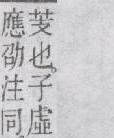 芰也。子虛
應劭注同